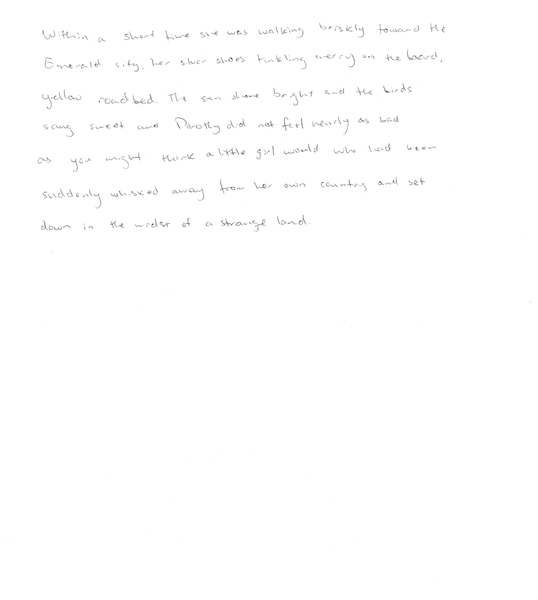 Within a short time she was walking briskly toward the
Emerald City, her silver shoes tinkling merry on the hard,
yellow roadbed. The sun shone bright and the birds
sang sweet and Dorothy did not feel nearly as bad
as you might think a little girl would who had been
suddenly whisked away from her own country and set
down in the midst of a strange land.